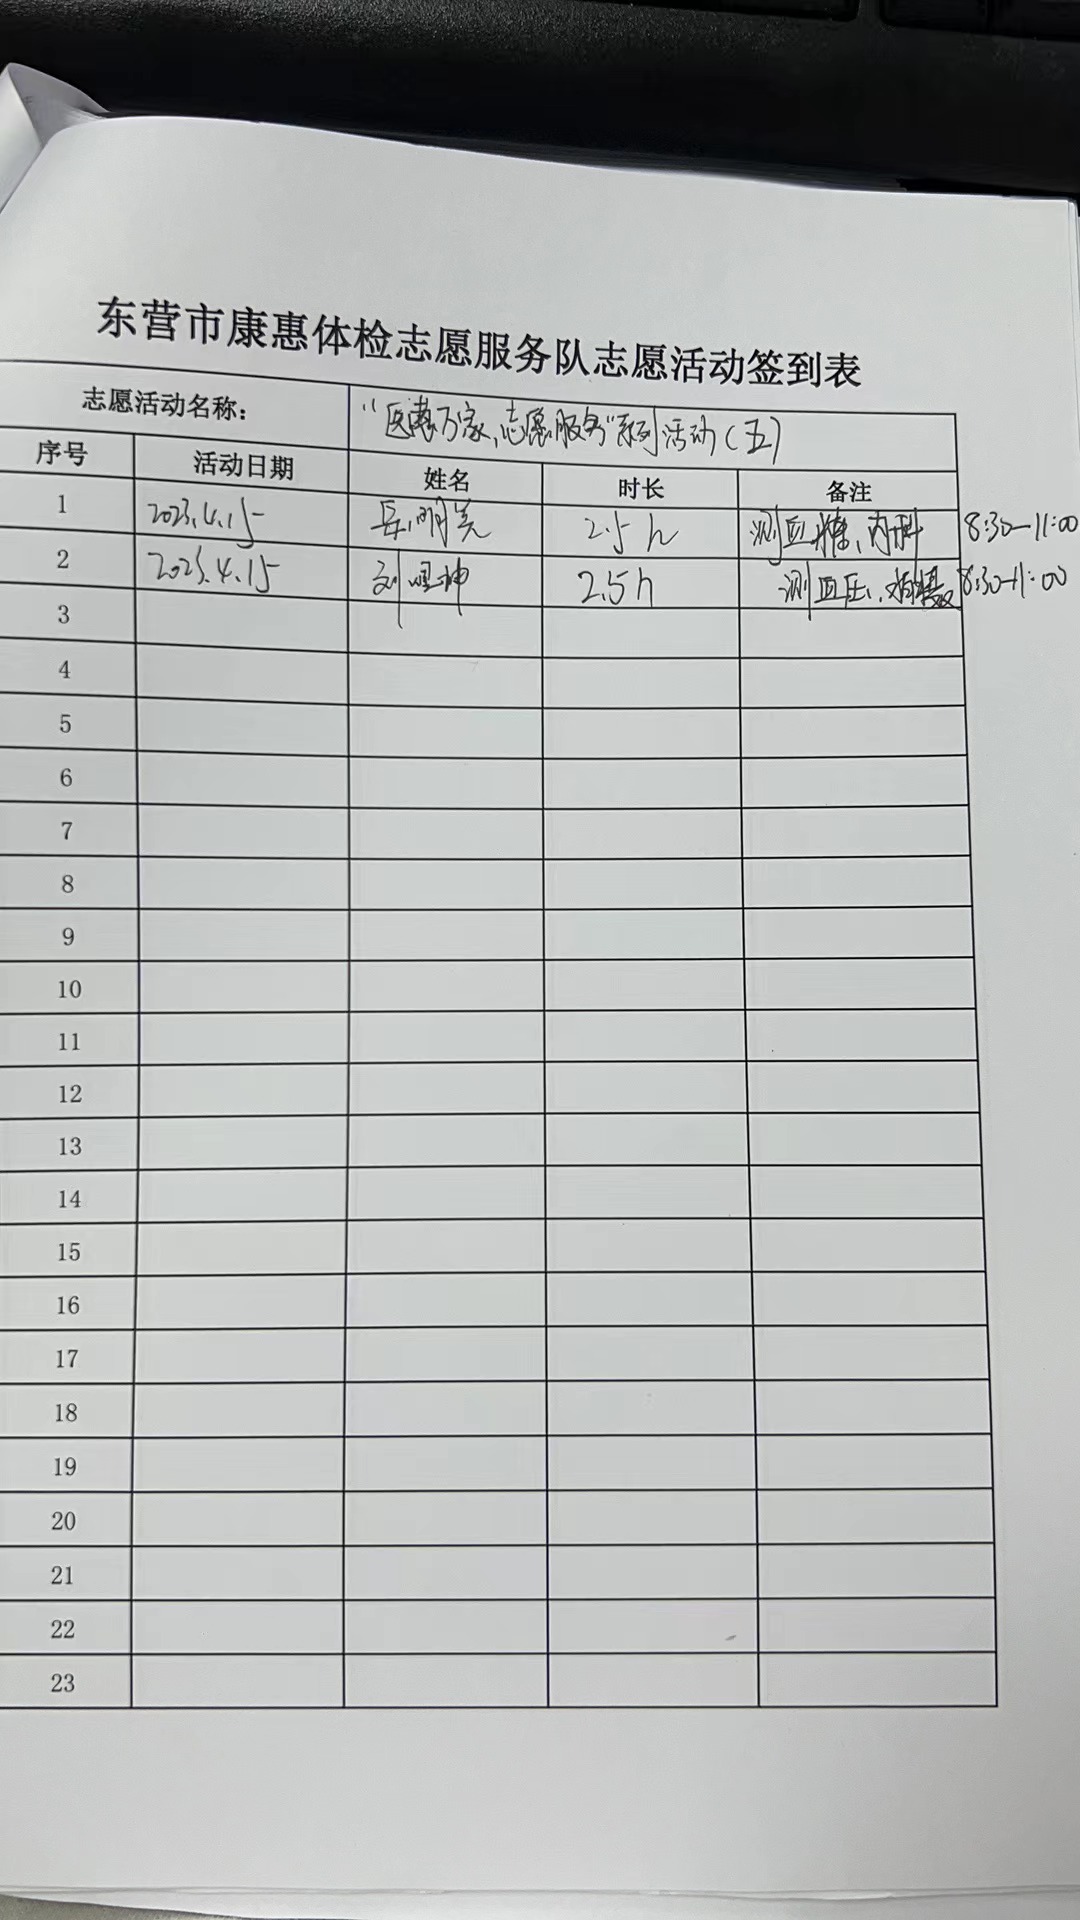 东营市康惠体检志愿服务队志愿活动签到表
志愿活动名称: "医惠万家,志愿服务"系列活动(五)
序号 活动日期 姓名 时长 备注
1 2023.4.15 岳明美 2.5h 测血糖、内科 8:30-11:00
2 2023.4.15 刘坤 2.5h 测血压、拍摄 8:30-11:00
3
4
5
6
7
8
9
10
11
12
13
14
15
16
17
18
19
20
21
22
23